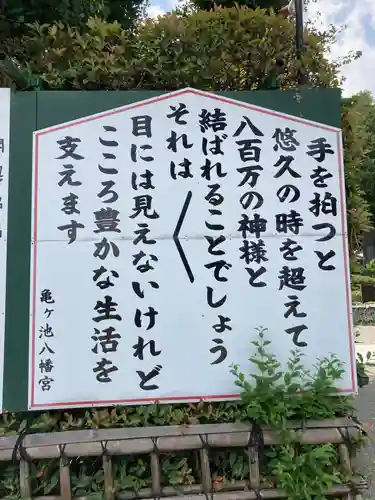 手を拍つと
悠久の時を超えて
八百万の神様と
結ばれることでしょう
それは〱
目には見えないけれど
こころ豊かな生活を
支えます
亀ヶ池八幡宮